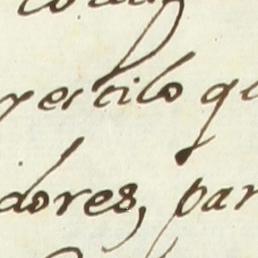 y estilo q
dores, par